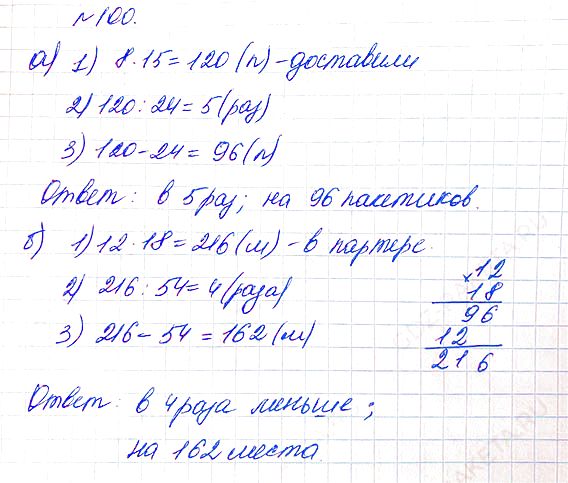 №100.
а) 1) 8·15=120 (п) - доставили
2) 120:24=5 (раз)
3) 120-24=96 (п)
Ответ: в 5 раз; на 96 пакетиков.
б) 1) 12·18=216 (м) - в партере.
2) 216:54=4 (раза)
3) 216-54=162 (м)
×12
18
96
12
216
Ответ: в 4 раза меньше;
на 162 места.